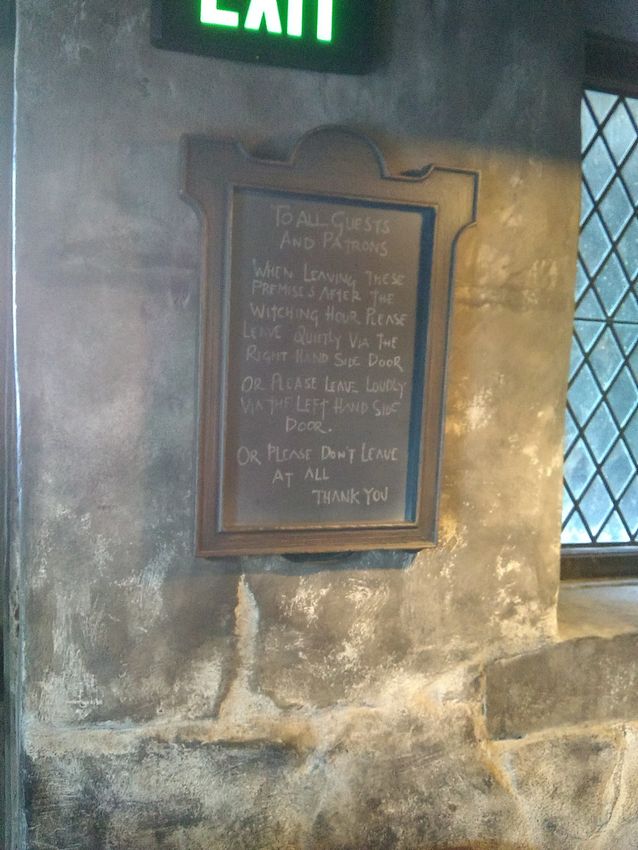 EXIT
TO ALL GUESTS
AND PATRONS
WHEN LEAVING THESE
PREMISES AFTER THE
WITCHING HOUR PLEASE
LEAVE QUIETLY VIA THE
RIGHT HAND SIDE DOOR
OR PLEASE LEAVE LOUDLY
VIA THE LEFT HAND SIDE
DOOR.
OR PLEASE DON'T LEAVE
AT ALL
THANK YOU